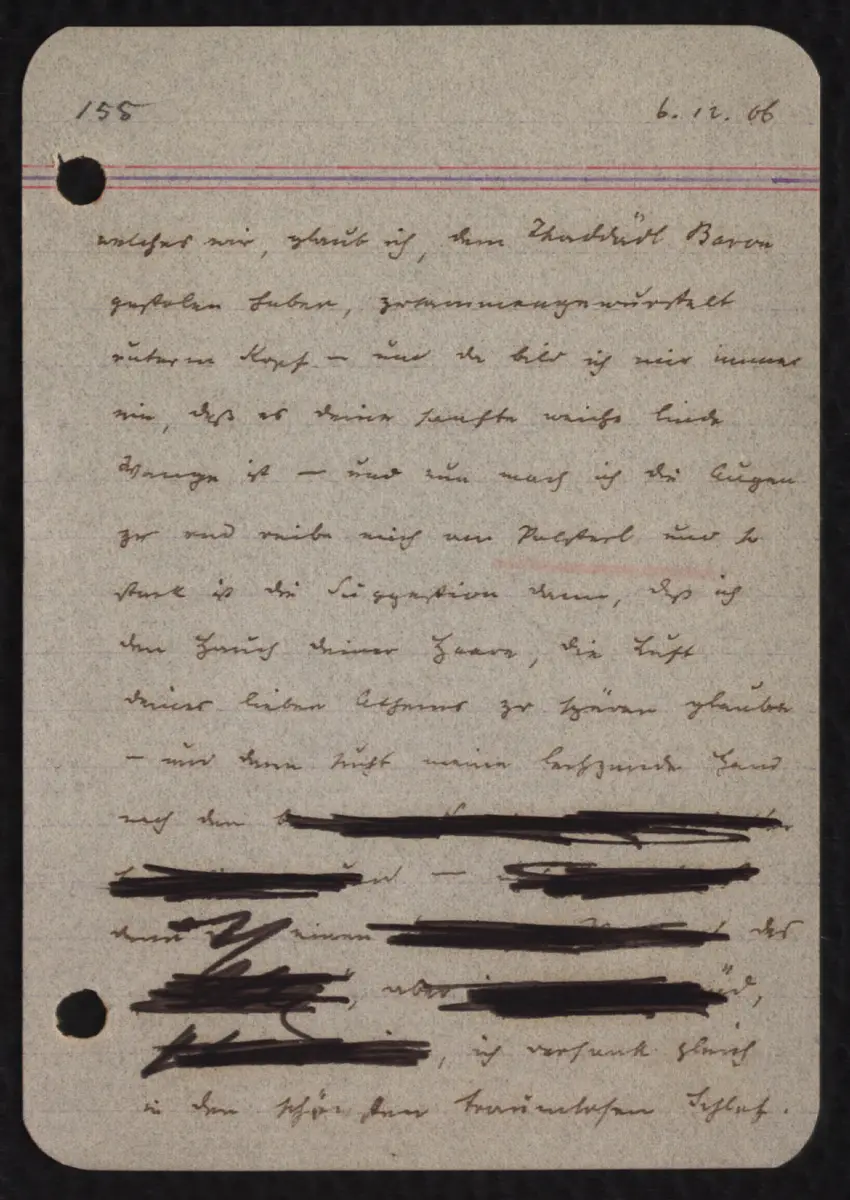 158 6. 12. 06
welches wir, glaub ich, dem Thaddädl Baron
gestolen haben, zusammengewurstelt
unterm Kopf – und da bild ich mir immer
ein, daß es deine sanfte weiche linde
Wange ist – und nun mach ich die Augen
zu und reibe mich am Polsterl und so
stark ist die Suggestion dann, daß ich
den Hauch deiner Haare, die Luft
deines lieben Athems zu spüren glaube
– und dann sucht meine lechzende Hand
nach dem
–
dann einen des
, aber
, ich versank gleich
in den schönsten traumlosen Schlaf.